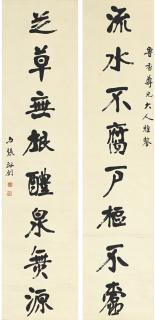 魯香尊兄大人雅鑒
流水不腐戶樞不蠹
芝草無根醴泉無源
張裕釗